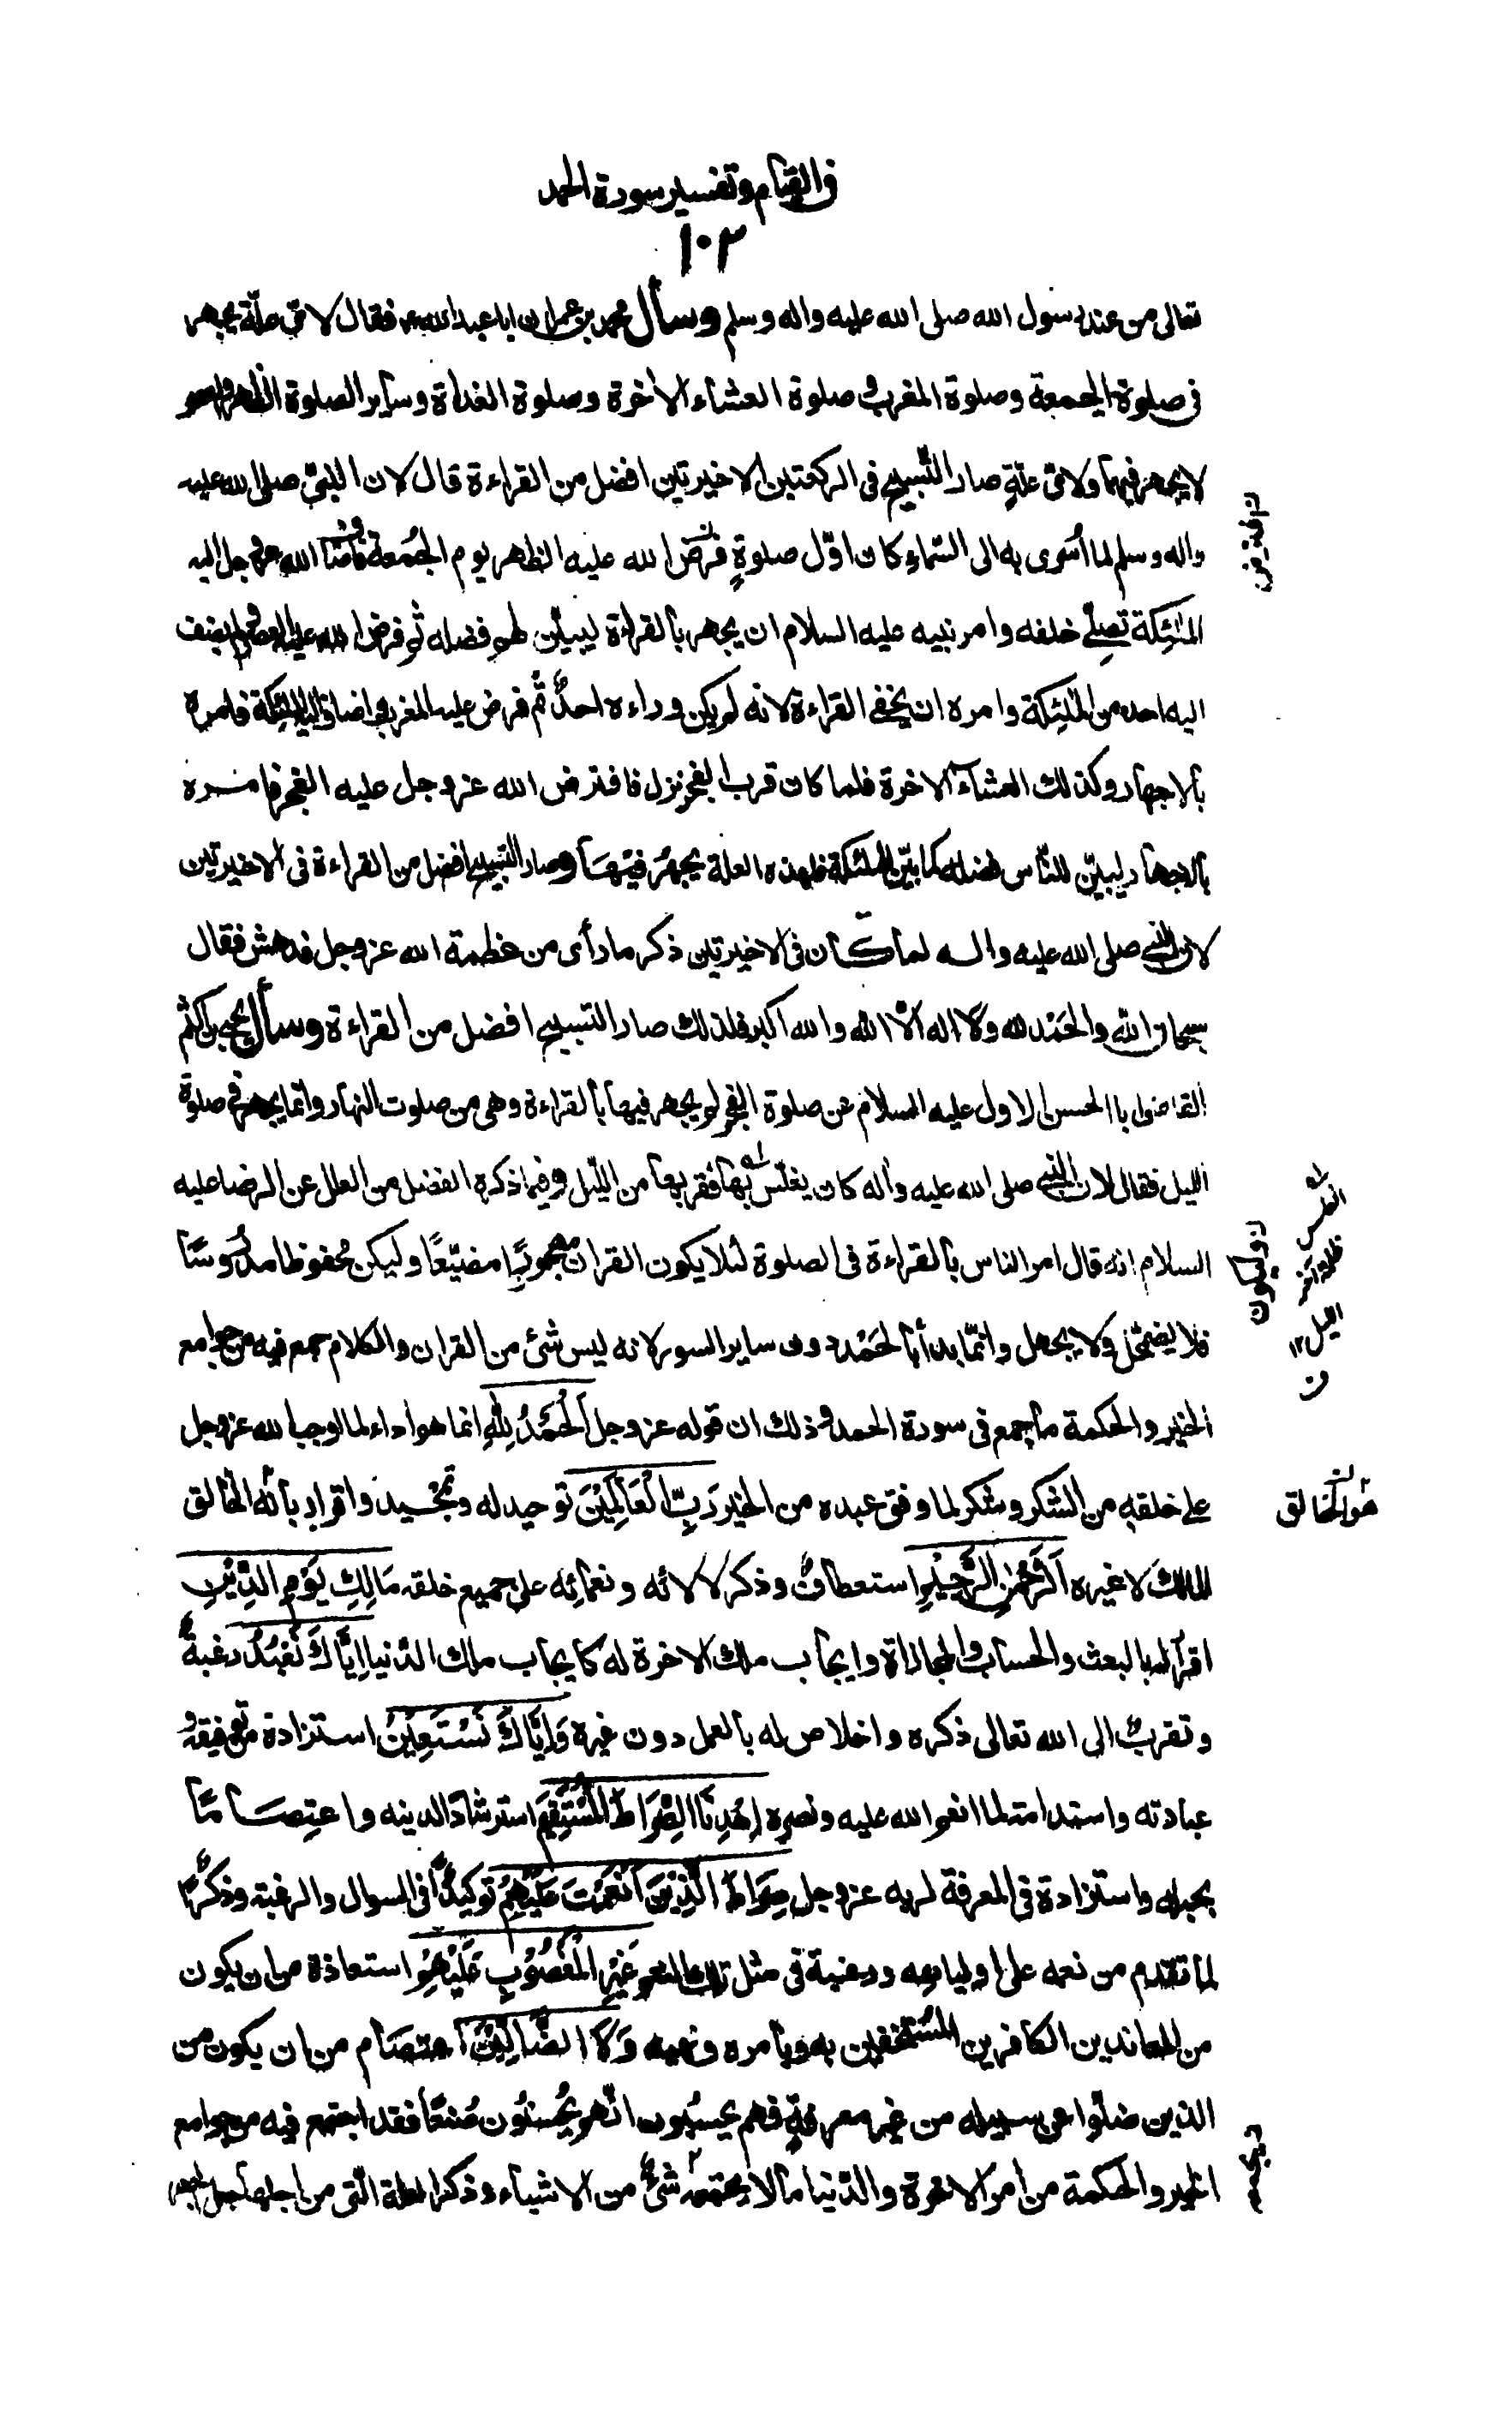 فی القیام وتفسیر سورة الحمد
١٠٣
تعالی من عند رسول الله صلی الله علیه واله وسلم وسأل محمد بن عمران ابا عبد الله ع فقال لای علّة یجهر
فی صلوة الجمعة وصلوة المغرب و صلوة العشاء الاخرة وصلوة الغداة وسایر الصلوة الظهر والعصر
لا یجهر فیهما ولای علّةٍ صار التّسبیح فی الرکعتین الاخیرتین افضل من القراءة قال لان النبیّ صلی الله علیه
واله وسلم لما اُسری به الی السّماء کان اوّل صلوةٍ فرض الله علیه الظهر یوم الجُمعة فاضاف الله عز و جل الیه
الملئِکة تصلّی خلفه وامر نبیه علیه السلام ان یجهر بالقراءة لیبیّن لهم فضله ثم فرض الله علیه العصر ولم یضف
الیه احدا من الملئِکة وامره ان یخفی القراءة لانه لم یکن وراءه احدٌ ثم فرض علیه المغرب و اضاف الیه الملئِکة فامره
بالاجهار وکذلك العشاء الاخرة فلما کان قرب الفجر نزل فافترض الله عز وجل علیه الفجر فامره
بالاجهار لیبیّن للنّاس فضله کما بیّن للملئکة فلهذه العلة یجهرُ فیها وصار التسبیح افضل من القراءة فی الاخیرتین
لان النبی صلی الله علیه واله لما کان فی الاخیرتین ذکر ما رأی من عظمة الله عز وجل فدهش فقال
سبحان الله والحَمْد لله ولا اله الّا الله والله اکبر فلذلك صار التسبیح افضل من القراءة وسأل یحیی بن اکثم
القاضی ابا الحسن الاول علیه السلام عن صلوة الفجر لم یجهر فیها بالقراءة وهی من صلوت النهار وانما یجهر فی صلوة
اللیل فقال لان النبی صلی الله علیه واله کان یغلّس بها فقربها من اللیل وفیما ذکره الفضل من العلل عن الرضا علیه
السلام انه قال امر الناس بالقراءة فی الصلوة لئلا یکون القران مهجورًا مضیّعًا ولیکن مُحفوظا مدرُوسًا
فلا یضمحلّ ولا یجهل وانّما بدأ بالحَمْد دون سایر السور لانه لیس شئ من القران والکلام جمع فیه من جوامع
الخیر والحکمة ما جمع فی سورة الحمد و ذلك ان قوله عز وجل اَلْحَمْدُ لِلّٰهِ انما هو اداء لما اوجب الله عز وجل
علی خلقه من الشکر وشکر لما وفق عبده من الخیر رَبِّ الْعَالَمِیْنَ توحید له وتمجید واقرار بانّه الخالق
المالك لا غیره اَلرَّحْمٰنِ الرَّحِیْمِ استعطافٌ وذکر لآلائه ونعمائه علی جمیع خلقه مَالِكِ یَوْمِ الدِّیْنِ
اقرار له بالبعث والحساب والمجازاة وایجاب ملك الاخرة له کایجاب ملك الدّنیا اِیَّاكَ نَعْبُدُ رغبةٌ
وتقربٌ الی الله تعالی ذکره واخلاص له بالعمل دون غیره وَاِیَّاكَ نَسْتَعِیْنُ استزادة من توفیقه و
عبادته واستدامته لما انعم الله علیه ونصره اِهْدِنَا الصِّرَاطَ الْمُسْتَقِیْمَ استرشادًا لدینه واعتِصَامًا
بحبله واستزادة فی المعرفة لربه عز وجل صِرَاطَ الَّذِیْنَ اَنْعَمْتَ عَلَیْهِمْ توکیدًا فی السوال والرغبة وذکرًا
لما تقدم من نعمه علی اولیائه ورغبة فی مثل تلك النعم غَیْرِ الْمَغْضُوْبِ عَلَیْهِمْ استعاذة من ان یکون
من المعاندین الکافرین المُستخفین به وبامره ونهیه وَلَا الضَّالِّیْنَ اعتصام من ان یکون من
الذین ضلّوا عن سبیله من غیر معرفةٍ وهم یحسبُون انّهم یُحسنُون صُنعًا فقد اجتمع فیه من جوامع
الخیر والحکمة من امر الاخرة والدّنیا ما لا یجمعه شئٌ من الاشیاء وذکر العلة الّتی من اجلها جعل الجهر
ن افترض
ن ولیکون
له
الغلس
ظلمة اخر
اللیل ١٢
ن
هو الخالق